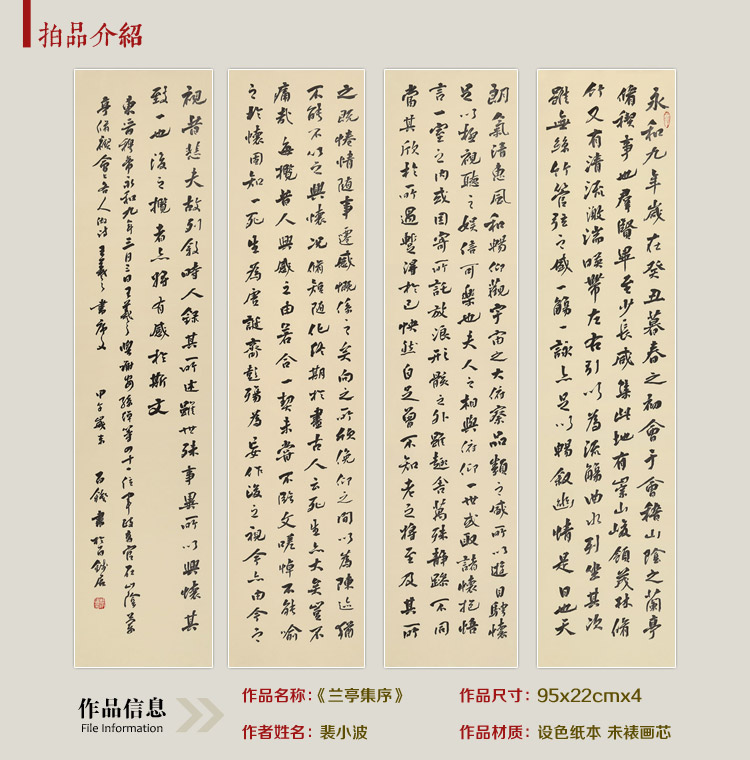 拍品介紹
永和九年歲在癸丑暮春之初會于會稽山陰之蘭亭
脩稧事也羣賢畢至少長咸集此地有崇山峻領茂林脩
竹又有清流激湍暎帶左右引以為流觴曲水列坐其次
雖無絲竹管弦之盛一觴一詠亦足以暢敘幽情是日也天
朗氣清惠風和暢仰觀宇宙之大俯察品類之盛所以遊目騁懷
足以極視聽之娛信可樂也夫人之相與俯仰一世或取諸懷抱悟
言一室之內或因寄所託放浪形骸之外雖趣舍萬殊靜躁不同
當其欣於所遇暫得於己怏然自足曾不知老之將至及其所
之既惓情隨事遷感慨係之矣向之所欣俛仰之間以為陳迹猶
不能不以之興懷況脩短隨化終期於盡古人云死生亦大矣豈不
痛哉每攬昔人興感之由若合一契未嘗不臨文嗟悼不能喻
之於懷固知一死生為虛誕齊彭殤為妄作後之視今亦由今之
視昔悲夫故列敘時人錄其所述雖世殊事異所以興懷其
致一也後之攬者亦將有感於斯文
東晉穆帝永和九年三月三日王羲之與謝安孫綽等四十一位軍政高官在山陰蘭
亭修禊會之各人做詩王羲之書序文 甲午歲末 書於
作品信息
File Information
作品名称:《兰亭集序》
作品尺寸: 95x22cmx4
作者姓名: 裴小波
作品材质: 设色纸本 未裱画芯